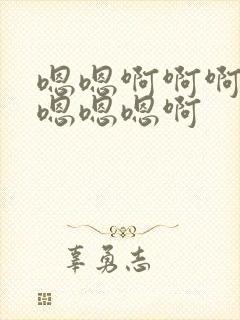 嗯嗯啊啊啊
嗯嗯嗯啊
辜勇志